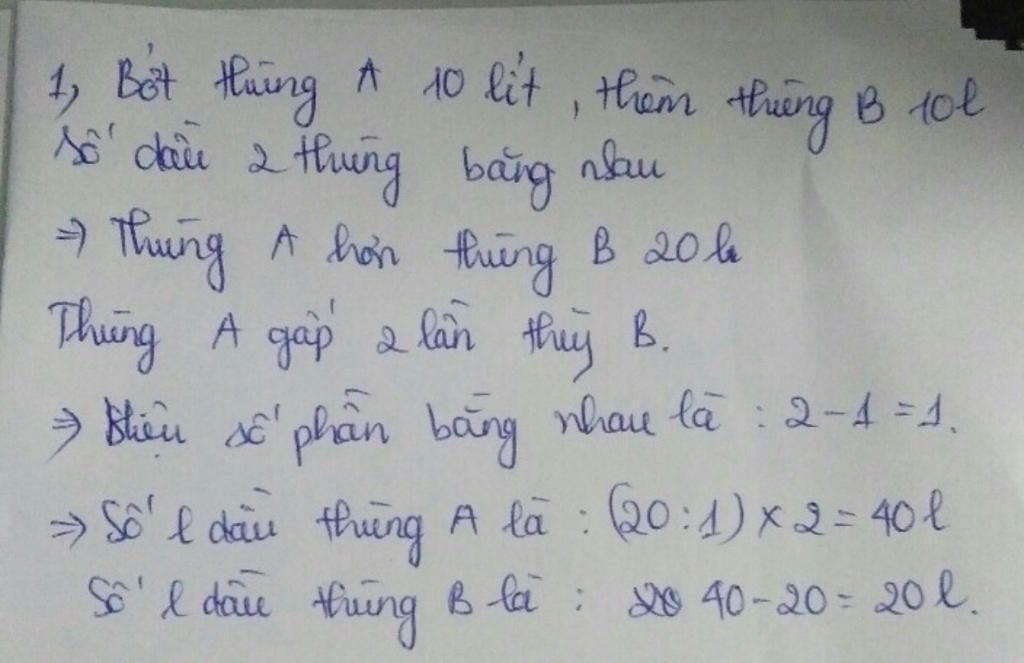 1, Bớt thùng A 10 lít, thêm thùng B 10l
Số dầu 2 thùng bằng nhau
=> Thùng A hơn thùng B 20l
Thùng A gấp 2 lần thùg B.
=> Hiệu số phần bằng nhau là : 2-1=1.
=> Số l dầu thùng A là : (20:1) × 2 = 40l
Số l dầu thùng B là : 40-20= 20l.